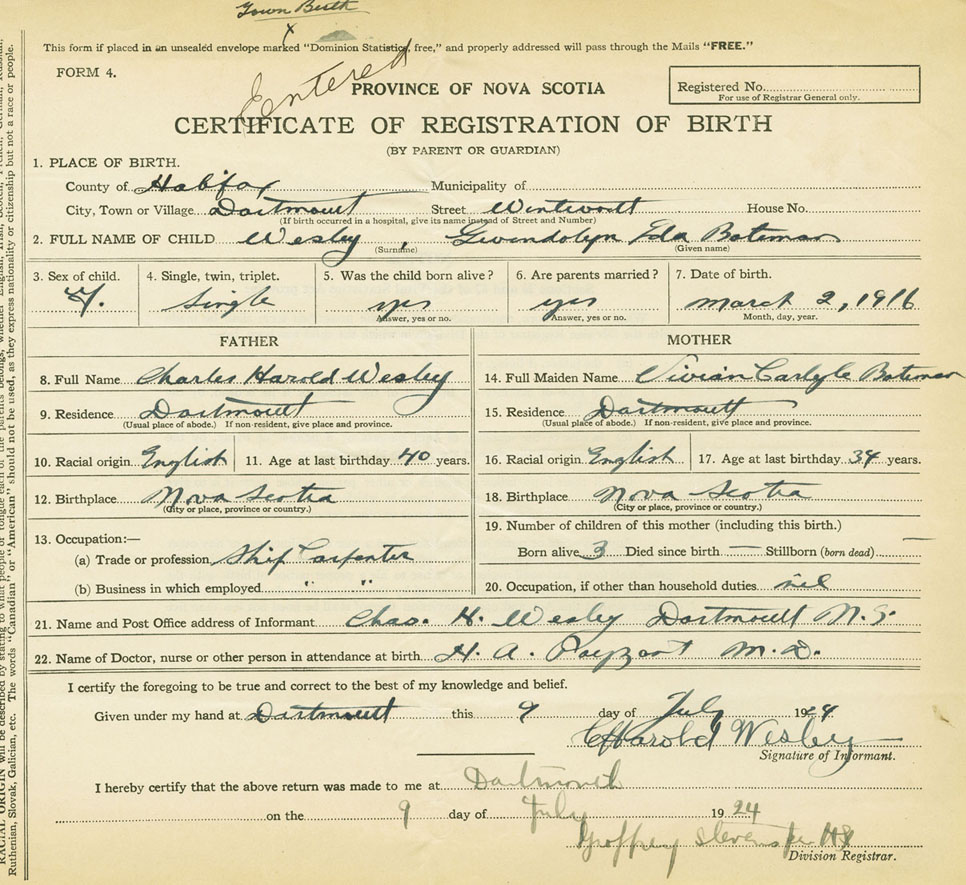 Town Birth
This form if placed in an unsealed envelope marked "Dominion Statistics, free," and properly addressed will pass through the Mails "FREE."
FORM 4.
Entered
PROVINCE OF NOVA SCOTIA
Registered No.
For use of Registrar General only.
CERTIFICATE OF REGISTRATION OF BIRTH
(BY PARENT OR GUARDIAN)
1. PLACE OF BIRTH.
County of Halifax Municipality of
City, Town or Village Dartmouth Street Wentworth House No.
(If birth occurred in a hospital, give its name instead of Street and Number)
2. FULL NAME OF CHILD Wesley, Gwendolyn Eda Bateman
(Surname) (Given name)
3. Sex of child. 4. Single, twin, triplet. 5. Was the child born alive? 6. Are parents married? 7. Date of birth.
F. Single yes yes March 2, 1916
Answer, yes or no. Answer, yes or no. Month, day, year.
FATHER MOTHER
8. Full Name Charles Harold Wesley 14. Full Maiden Name Vivian Carlyle Bateman
9. Residence Dartmouth 15. Residence Dartmouth
(Usual place of abode.) If non-resident, give place and province. (Usual place of abode.) If non-resident, give place and province.
10. Racial origin English 11. Age at last birthday 40 years. 16. Racial origin English 17. Age at last birthday 34 years.
12. Birthplace Nova Scotia 18. Birthplace Nova Scotia
(City or place, province or country.) (City or place, province or country.)
19. Number of children of this mother (including this birth.)
13. Occupation:—
(a) Trade or profession Ship Carpenter Born alive 3 Died since birth — Stillborn (born dead) —
(b) Business in which employed " " 20. Occupation, if other than household duties nil
21. Name and Post Office address of Informant Chas. H. Wesley Dartmouth N.S.
22. Name of Doctor, nurse or other person in attendance at birth H. A. Payzant M.D.
I certify the foregoing to be true and correct to the best of my knowledge and belief.
Given under my hand at Dartmouth this 9 day of July 1924
C Harold Wesley
Signature of Informant.
I hereby certify that the above return was made to me at Dartmouth
on the 9 day of July 1924
Geoffrey Stevens
Division Registrar.
RACIAL ORIGIN will be described by stating to what people or
Ruthenian, Slovak, Galician, etc. The words "Canadian" or "American" should not be used, as they express nationality or citizenship but not a race or people.